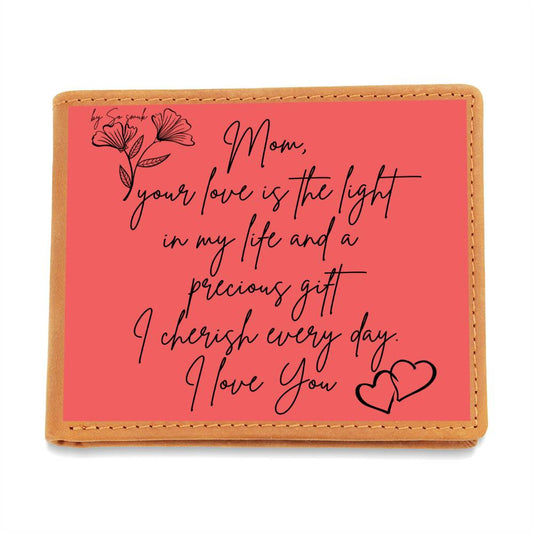 by So smuk
Mom,
your love is the light
in my life and a
precious gift
I cherish every day.
I love You